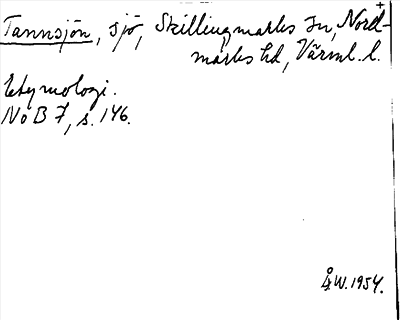 Tannsjön, sjö, Skillingmarks sn, Nord-
marks hd, Värml. l.
Etymologi.
NoB 7, s. 146.
Å.W. 1954.